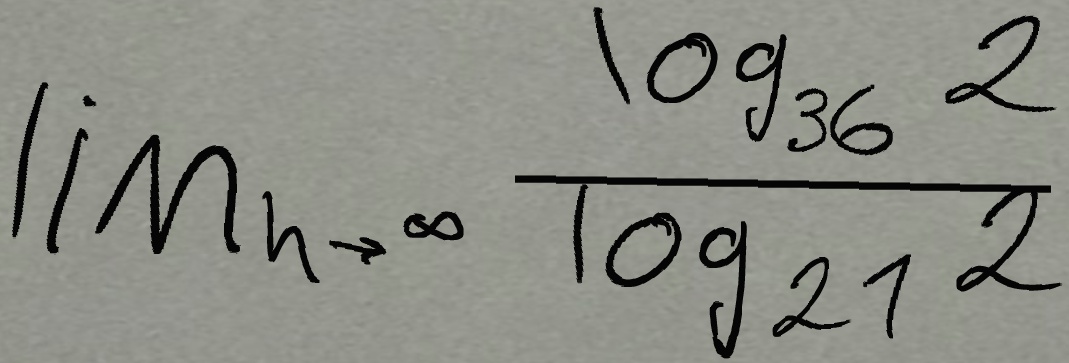 lim_{n→∞} \frac{log_{36} 2}{log_{21} 2}